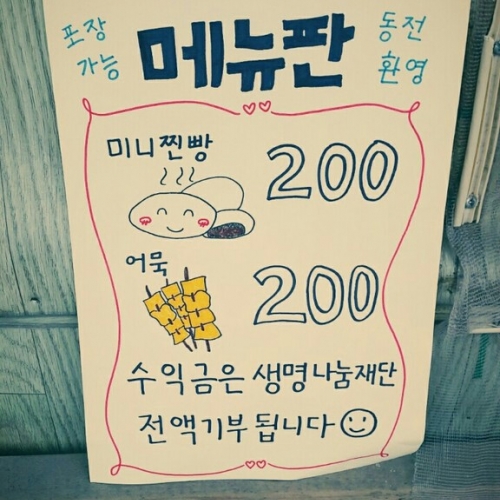 포장
가능
메뉴판
동전
환영
미니찐빵
200
어묵
200
수익금은 생명나눔재단
전액기부됩니다